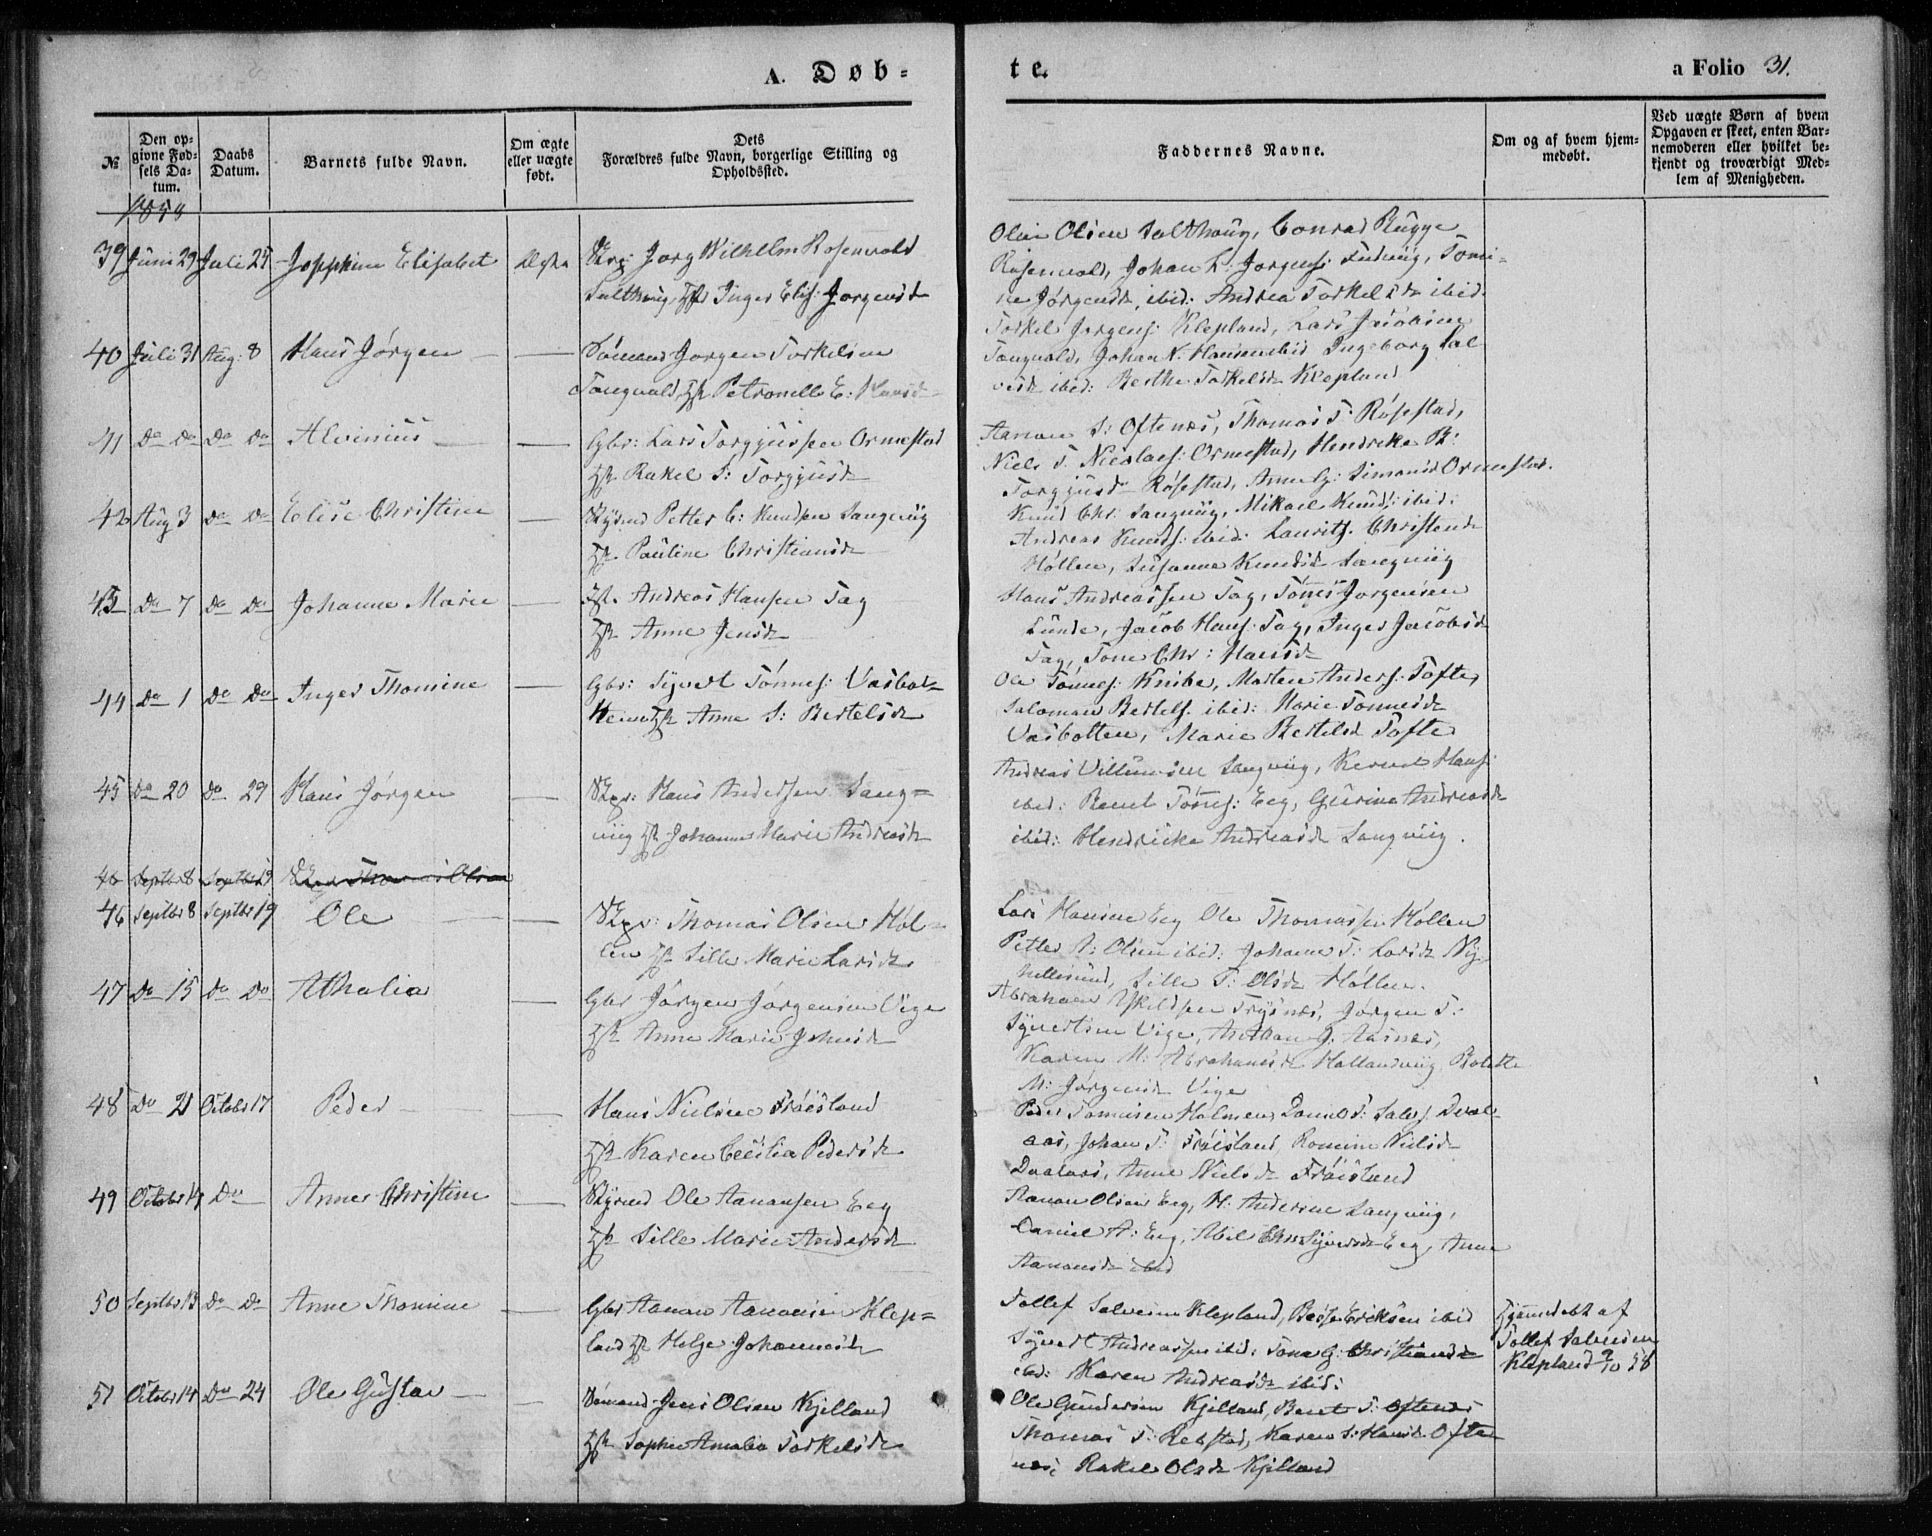 A. Døb-
te.
a Folio 31.
№
Den op-
givne Fød-
sels Da-
tum.
Daabs
Datum.
Barnets fulde Navn.
Om ægte
eller uægte
født.
Dets
Forældres fulde Navn, borgerlige Stilling og
Opholdssted.
Faddernes Navne.
Om og af hvem hjem-
medøbt.
Ved uægte Børn af hvem
Opgaven er skeet, enten Bar-
nemoderen eller hvilket be-
kjendt og troværdigt Med-
lem af Menigheden.
1858
39 Juni 29 Juli 25 Josephine Elisabet Ægte Jørg Wilhelm Rosenvold
Salthaug, H Inger Elis: Jørgensd
Olsen Salthaug, Conrad Bugge
Rosenvold, Johan L: Jørgens: Tomi-
ne Jørgensd, ibid: Andrea Torkelsd ibid.
40 Juli 31 Aug: 8 Hans Jørgen — — Sømand Jørgen Torkelsen
Tangvald, H Petronelle E: Hansd
Torkel Jørgens: Klepland, Lars
Tangvald, Johan N. Hansen ibid Ingeborg Sal-
vesd ibid: Berthe Torkelsd Klepland
41 Do Do Do Do Alvinius — — Gbr: Lars Torgjussen Ormestad
H Rakel S: Torgjusd
Aanon S: Oftenes, Thomas T: Røsestad,
Niels T. Nicolaes: Ormestad, Hendrike B:
Torgjusd Røsestad, Anne G: Simonsd Ormestad.
42 Aug 3 Do Do Elise Christine — Petter C: Knudsen Langenvig
H Pauline Christiansd
Knud Chr: Langvig, Mikael Knuds: ibid:
Andreas Knuds: ibid: Laurits Christensd
Høllen, Susanne Knudsd Langvig
43 Do 7 Do Do Johanne Marie — Andreas Hansen Tag
H Anne Jensd
Hans Andreassen Tag, Tønnes Jørgensen
Lunde, Jacob Hans: Tag, Inger Jacobsd
Tag, Tone Chr: Hansd
44 Do 1 Do Do Inger Thomine — Gbr: Syvert Tønnes: Vasbot-
ten H Anne S: Bertelsd
Ole Tønnes: Knibe, Morten Anders: Tofte,
Saloman Bertels. ibid: Marie Tønnesd
Vasbotten, Marie Bertelsd Tofte
45 Do 20 Do 29 Hans Jørgen — Hans Andersen Lang-
vig H Johanne Marie Andreasd
Andreas Villumsen Langvig, Hans:
ibid: Bernt Tønnes: Eeg, Gurine Andreasd
ibid: Hendricke Andreasd Langvig.
46 Septbr 8 Septbr 19 Thomas Olsen
46 Septbr 8 Septbr 19 Ole — Thomas Olsen Høl-
len H Sille Marie Larsd
Lars Hansen Eeg Ole Thomassen Høllen
Petter A: Olsen ibid: Johanne T: Larsd Ny-
hellesund, Sille T: Olsd Høllen.
47 Do 15 Do Do Athalia — Gbr Jørgen Jørgensen Vige
H Anne Marie Johnsd
Abraham Eskildsen Trysnes, Jørgen T:
Syvertsen Vige, G. Aasnes,
Karen M: Abrahamsd Hallandvig Bolette
M: Jørgensd Vige
48 Do 21 Octobr 17 Peder — — Hans Nielsen Frøisland
H Karen Cecilia Pedersd
Peder Holmen, Daniel S: Salv: Dval-
aas, Johan T: Frøisland, Romine Nielsd
Dvalaas, Anne Nielsd Frøisland
49 Octobr 14 Do Anne Christine — Ole Aanansen Eeg
H Sille Marie Andersd
Aanon Olsen Eeg, H: Andersen Langvig,
Daniel A: Eeg, Abel Chr: Syversd Eeg, Anne
Aanonsd ibid
50 Septbr 13 Do Do Anne Thomine — Gbr Aanon Aanonsen Klep-
land H Helge Johannesd
Tollef Salvesen Klepland, Erikson ibid
Syvert Andreassen ibid: Tone G: Christiansd
ibid: Karen Andreasd ibid:
Hjemdøbt af
Tollef Salvesen
Klepland 9/10 58
51 Octobr 14 Do 24 Ole Gustav — — Sømand Jens Olsen Kjelland
H Sophie Amalia Torkelsd
Ole Gundersen Kjelland, Bernt T: Oftenes
Thomas T: Rebstad, Karen S: Hansd Ofte-
nes, Rakel Olsd Kjelland